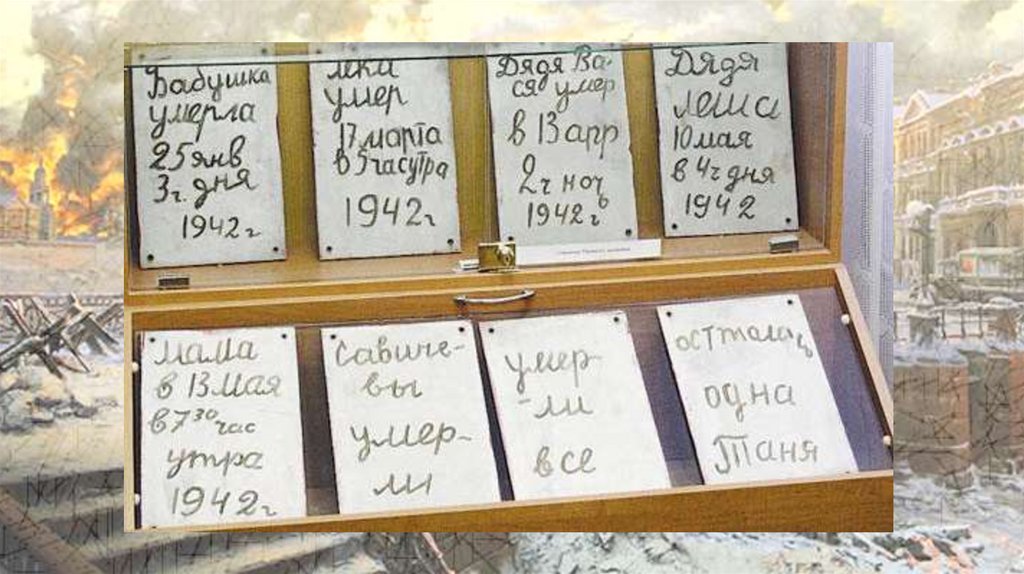 Бабушка
умерла
25 янв
3ч. дня
1942г
умер
17 марта
в 5 час утра
1942г
Дядя Ва-
ся умер
в 13 апр
2ч ночь
1942г
Дядя
Леша
10 мая
в 4ч дня
1942
Мама
в 13 мая
в 7 30 час
утра
1942г
Савиче-
вы
умер-
ли
умер-
-ли
все
осталась
одна
Таня